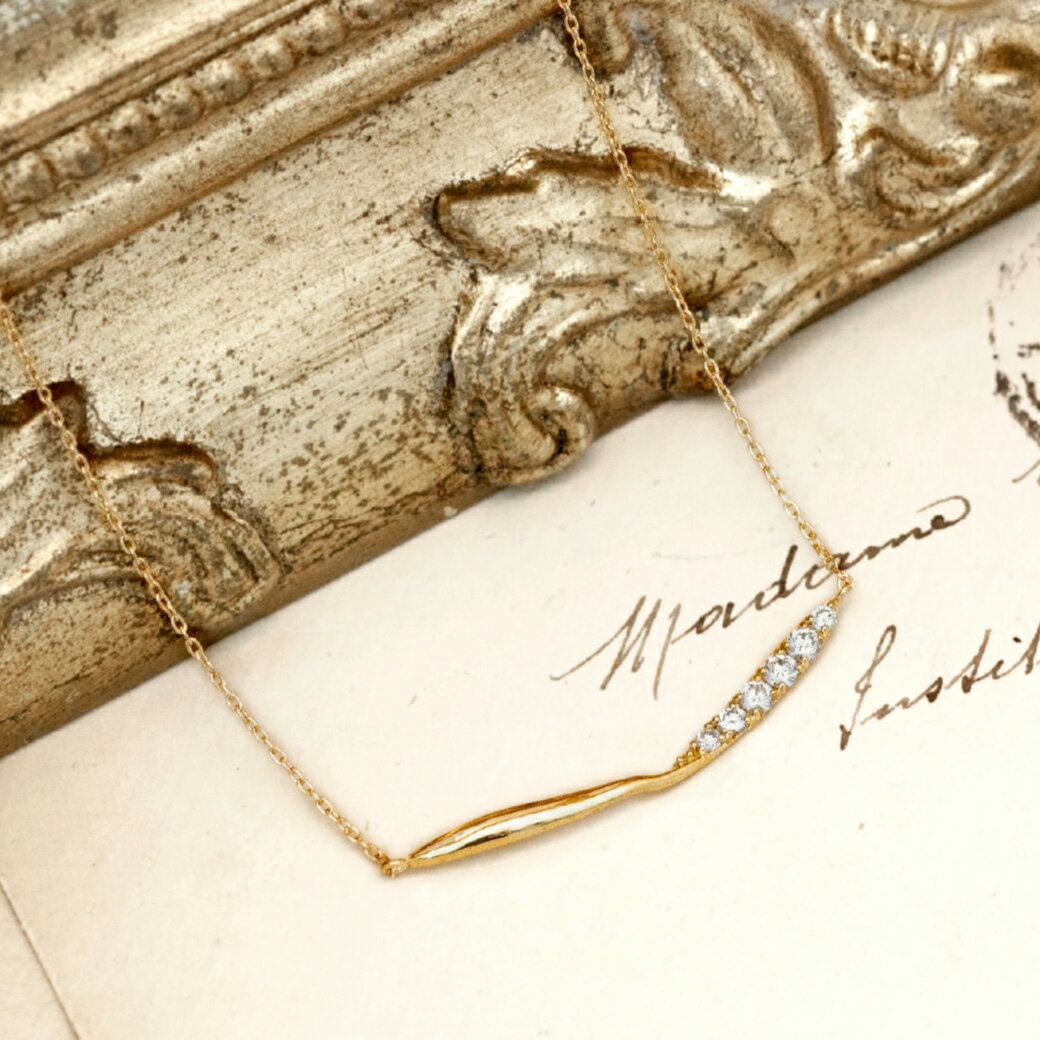 Madame
Instit